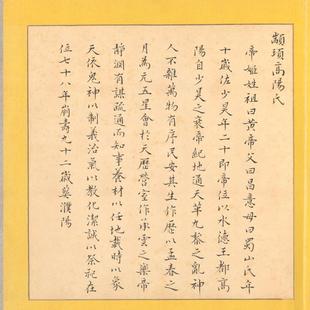 顓頊高陽氏
帝姬姓祖曰黃帝父曰昌意母曰蜀山氏年
十歲佐少昊年二十即帝位以水德王都高
陽自少昊之衰帝紀地通天革九黎之亂神
人不雜萬物有序民安其生作曆以孟春之
月為元五星會於天歷營室作承雲之樂帝
靜淵有謀疏通而知事養材以任地載時以象
天依鬼神以制義治氣以教化潔誠以祭祀在
位七十八年崩壽九十二歲葬濮陽